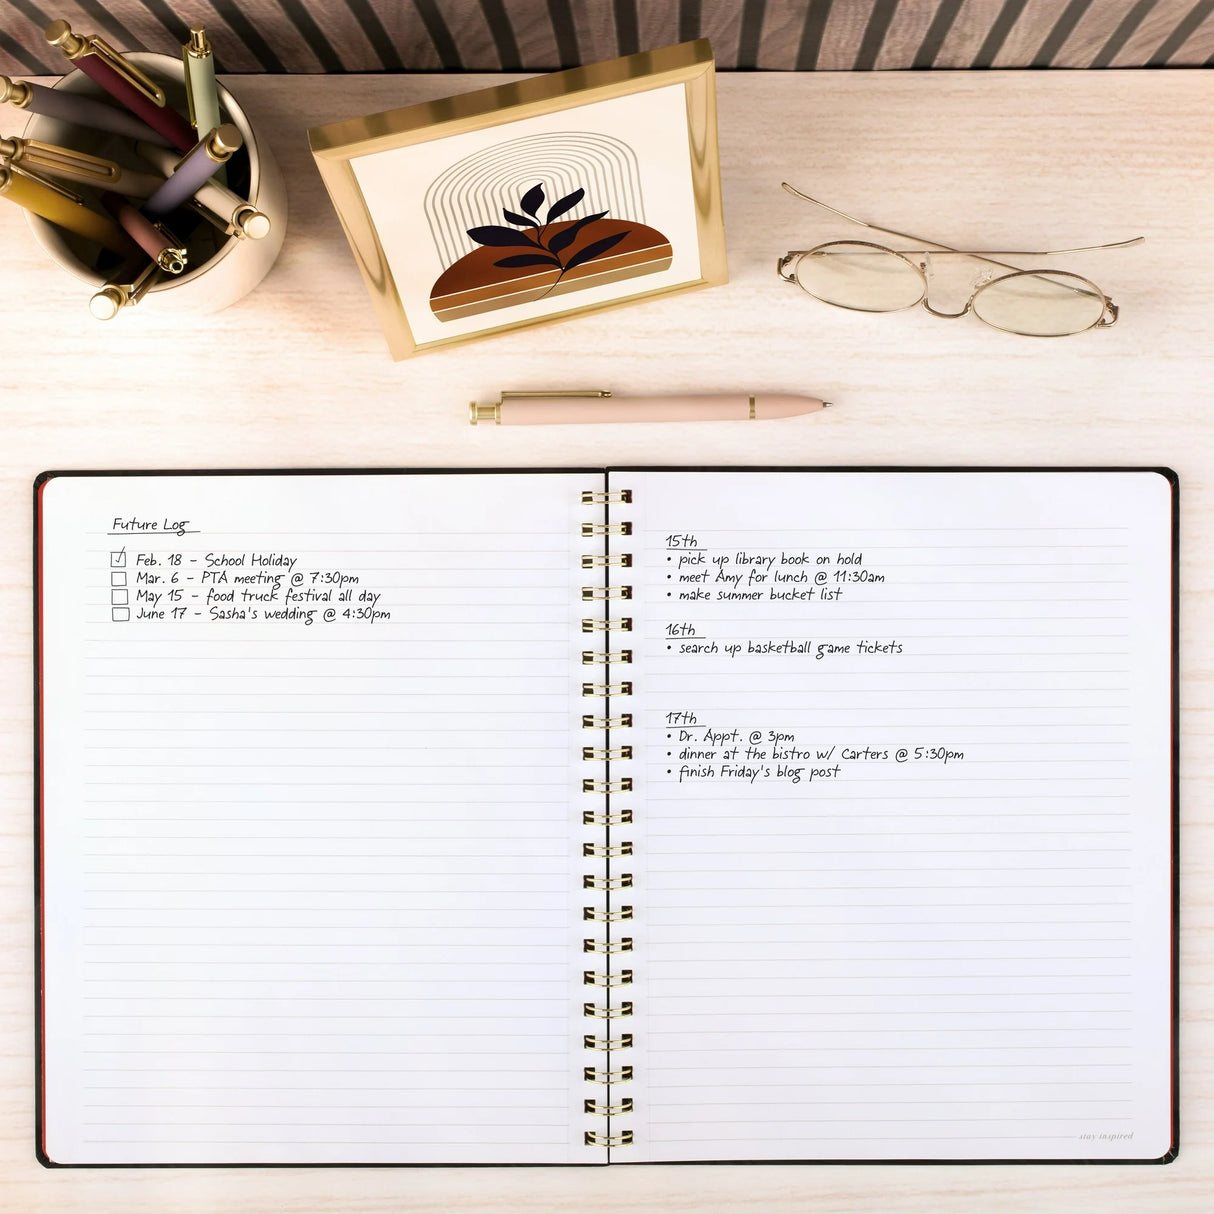 Future Log
Feb. 18 - School Holiday
Mar. 6 - PTA meeting @ 7:30pm
May 15 - food truck festival all day
June 17 - Sasha's wedding @ 4:30pm
15th
• pick up library book on hold
• meet Amy for lunch @ 11:30am
• make summer bucket list
16th
• search up basketball game tickets
17th
• Dr. Appt. @ 3pm
• dinner at the bistro w/ Carters @ 5:30pm
• finish Friday's blog post
stay inspired